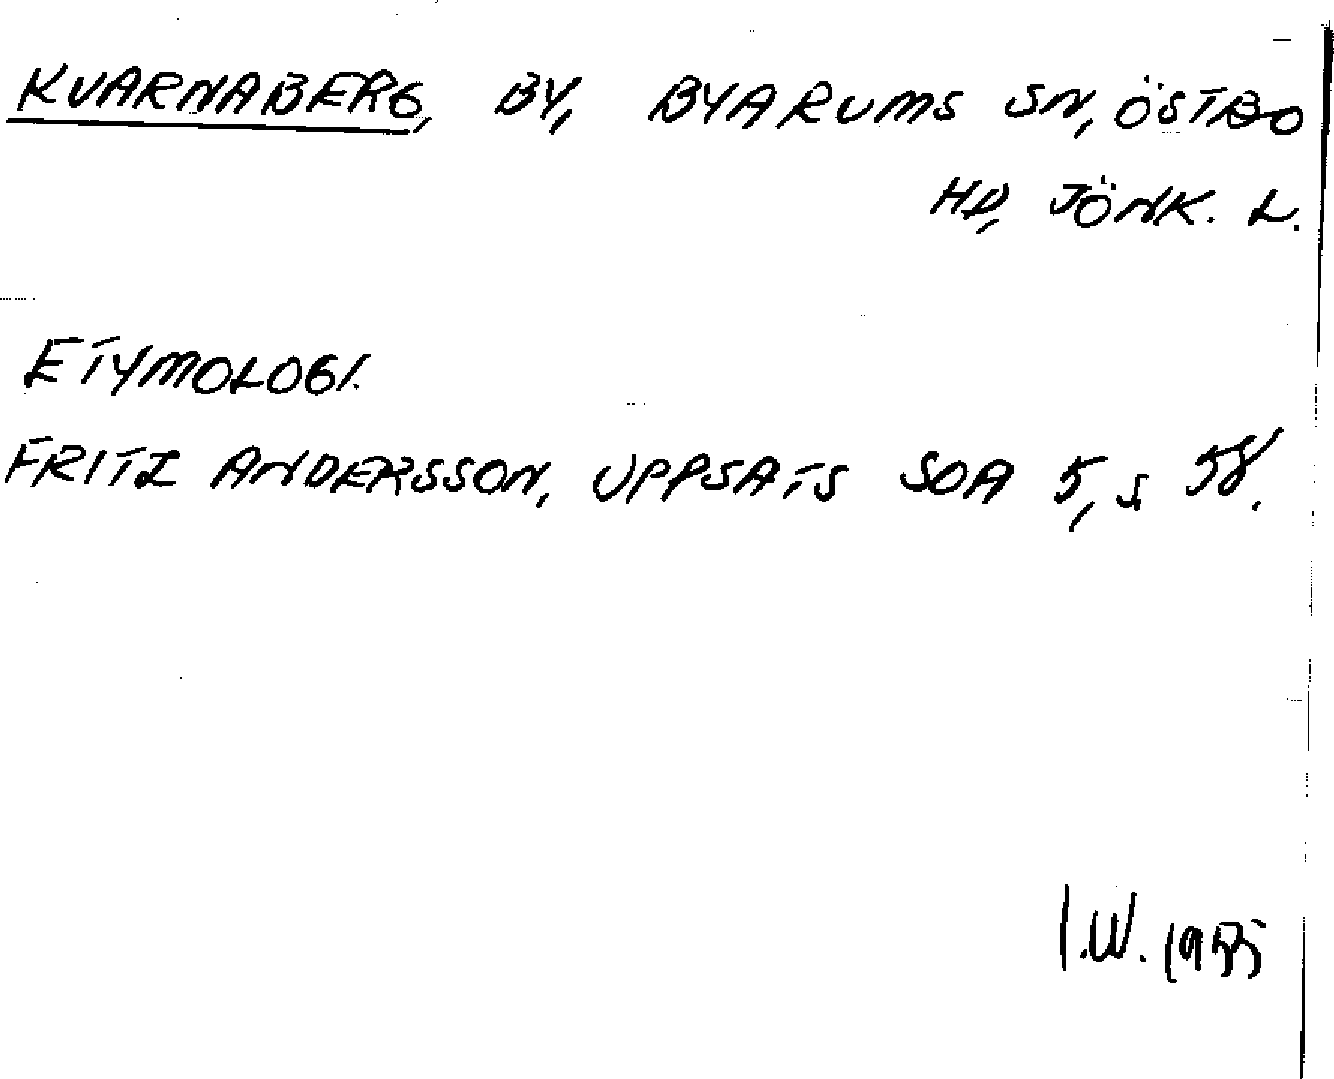 KVARNABERG, BY, BYARUMS SN, ÖSTBO
HD, JÖNK. L.
ETYMOLOGI.
FRITZ ANDERSSON, UPPSATS SOA 5, s 58.
I.W. 1955